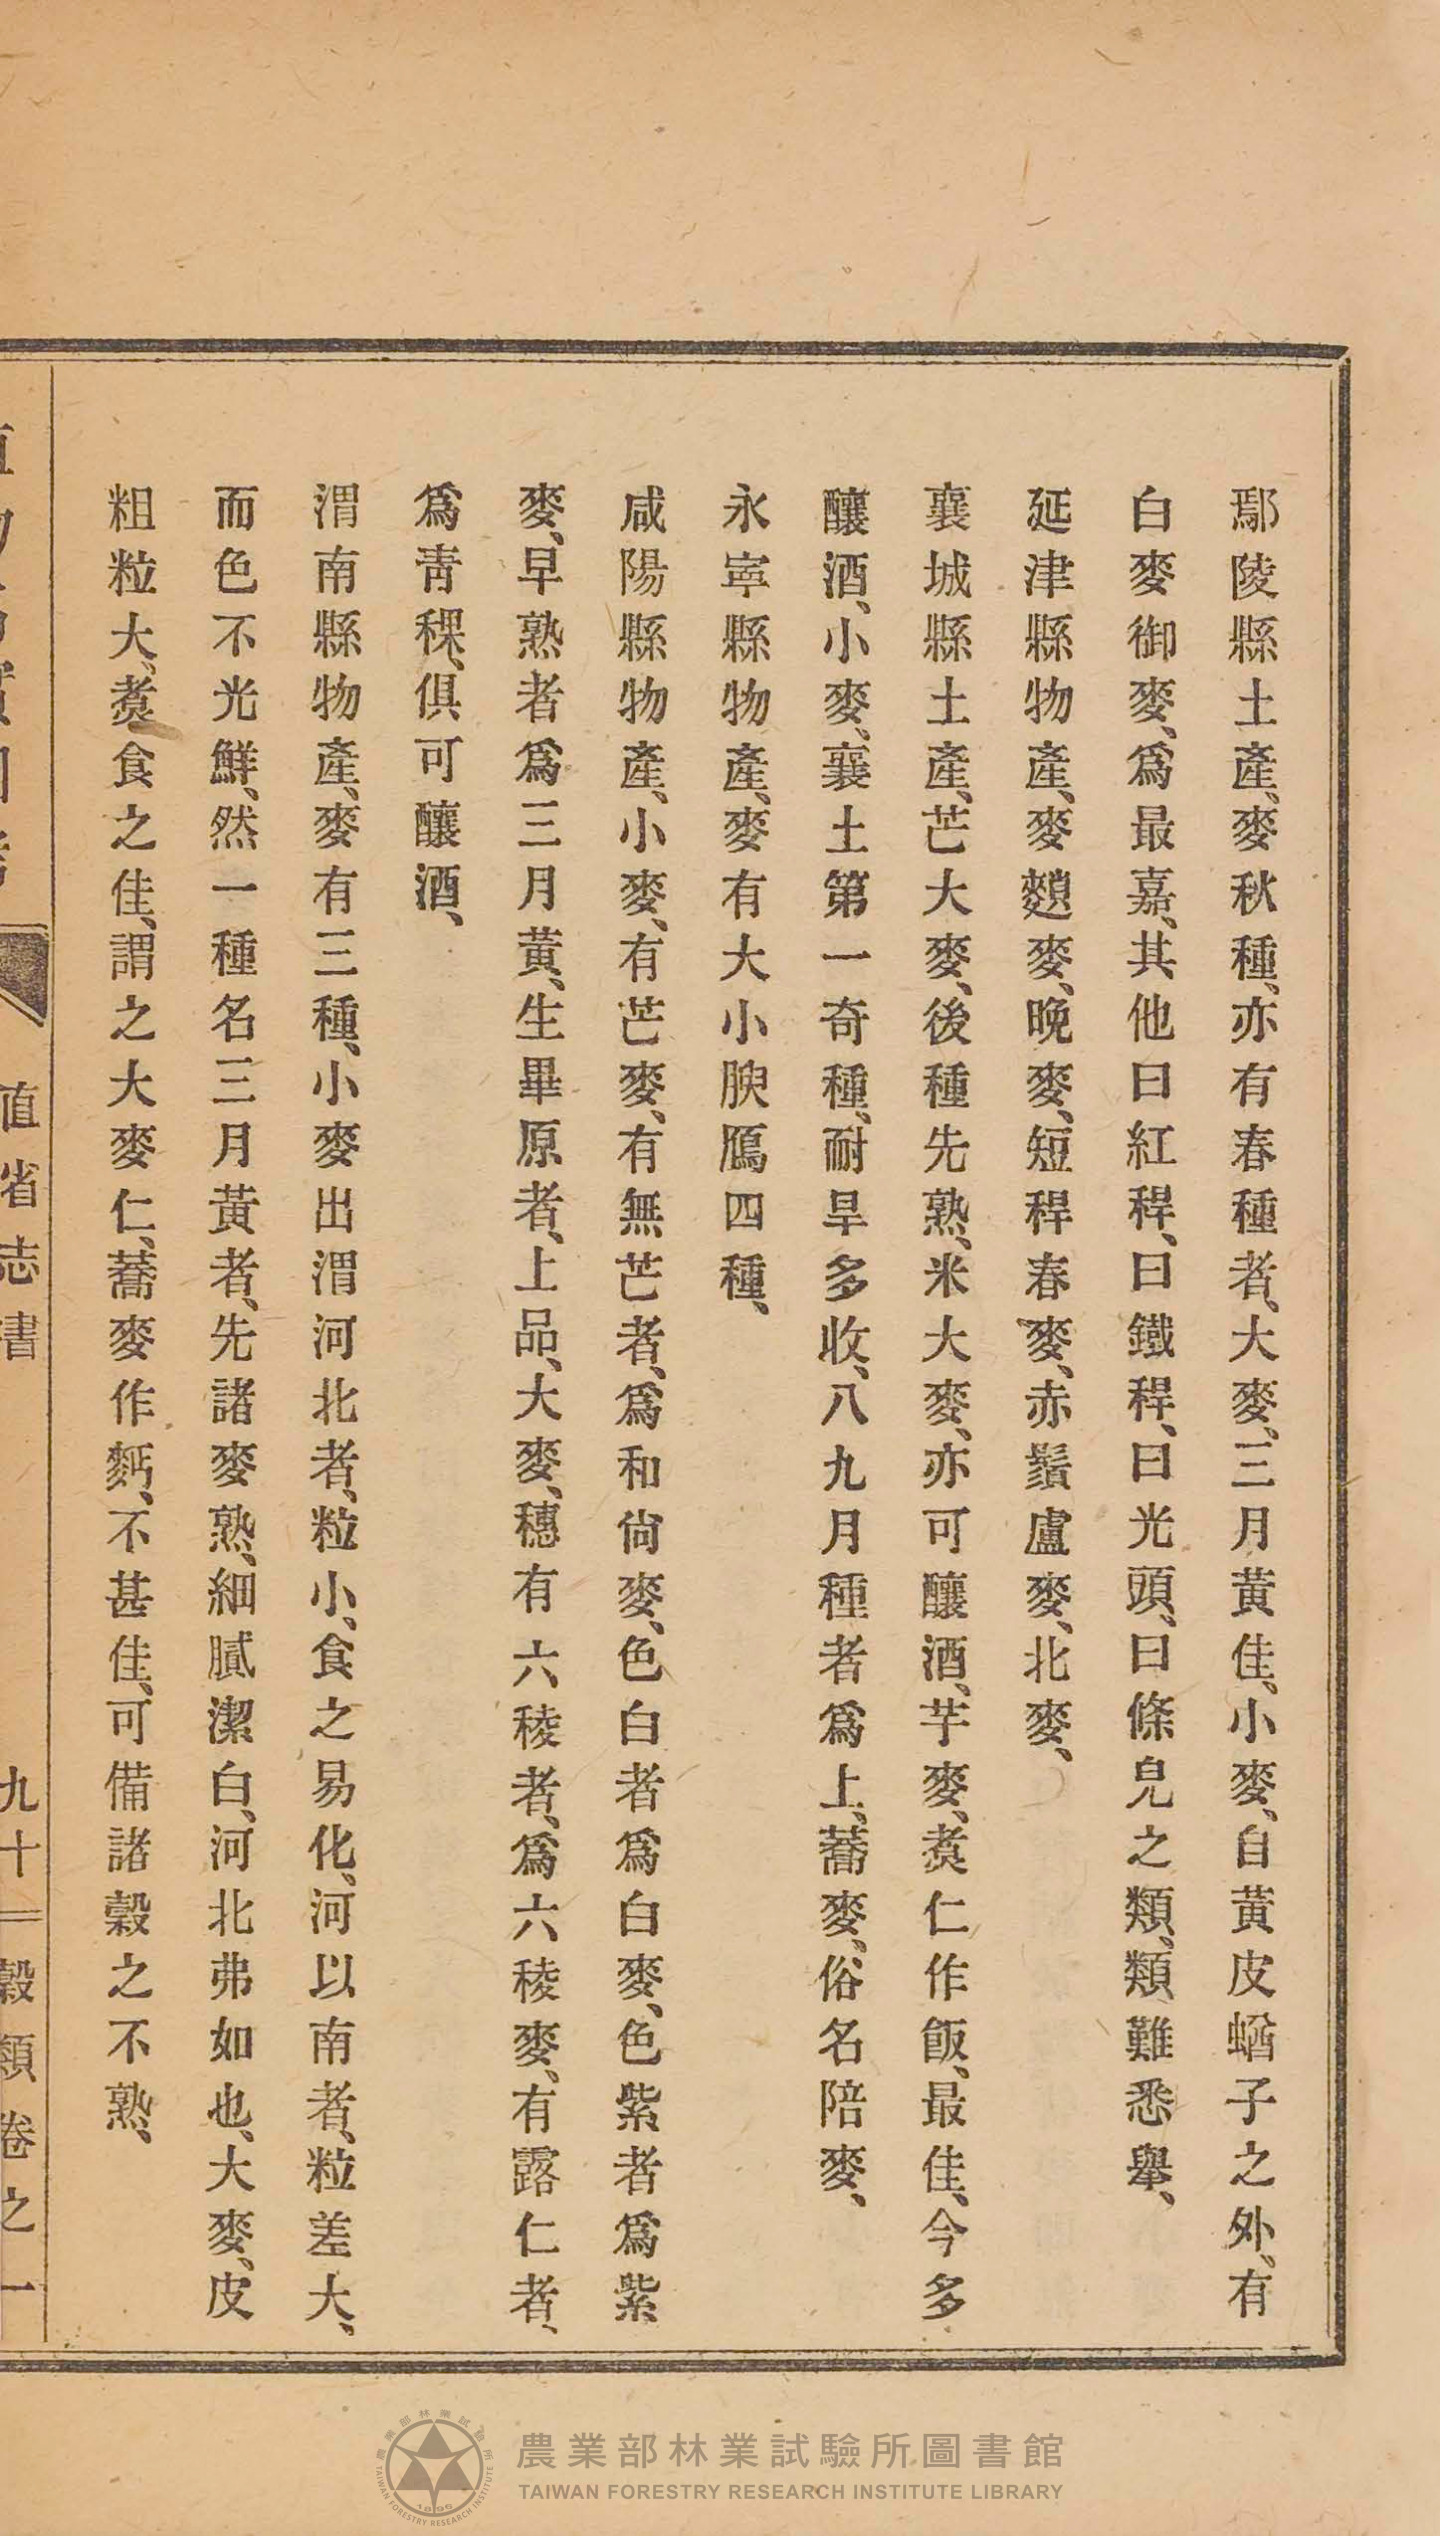 鄢陵縣土產、麥秋種、亦有春種者、大麥、三月黃佳、小麥、自黃皮蝤子之外、有
白麥御麥、爲最嘉、其他曰紅稈、曰鐵稈、曰光頭、曰條兒之類、類難悉舉、
延津縣物產、麥麴麥、晚麥、短稈春麥、赤鬚盧麥、北麥、
襄城縣土產、芒大麥、後種先熟、米大麥、亦可釀酒、芋麥、煑仁作飯、最佳、今多
釀酒、小麥、襄土第一奇種、耐旱多收、八九月種者爲上、蕎麥、俗名陪麥、
永寧縣物產、麥有大小腴鴈四種、
咸陽縣物產、小麥、有芒麥、有無芒者、爲和尙麥、色白者爲白麥、色紫者爲紫
麥、早熟者爲三月黃、生畢原者、上品、大麥、穗有六稜者、爲六稜麥、有露仁者、
爲靑稞、俱可釀酒、
渭南縣物產、麥有三種、小麥出渭河北者、粒小、食之易化、河以南者、粒差大、
而色不光鮮、然一種名三月黃者、先諸麥熟、細膩潔白、河北弗如也、大麥、皮
粗粒大、煑食之佳、謂之大麥仁、蕎麥作麪、不甚佳、可備諸穀之不熟、
直省志書 九十二 穀類卷之一
農業部林業試驗所圖書館
TAIWAN FORESTRY RESEARCH INSTITUTE LIBRARY